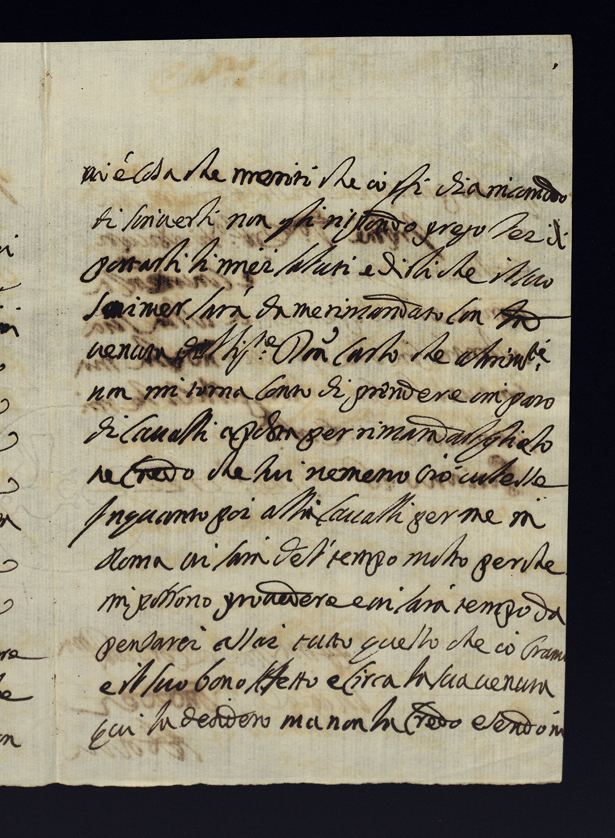 vi é Cosa che meriti che ci si dia incomodo
ti scriverli non gli rispondo prego lei di
portarli li miei saluti e di li che il suo
sara da me rimandato con
venuta Don Carlo che
non mi torna conto di prendere un paro
di Cavalli a posta per rimandarglielo
ne Credo che lui nemeno ciò volesse
Inquanto poi alli Cavalli per me in
Roma vi sara del tempo molto perche
mi possono provedere e vi sara tempo da
pensarci assai tutto quello che io bramo
e il suo bono affetto e Circa la sua venuta
qui la desidero ma non la Credo esendom